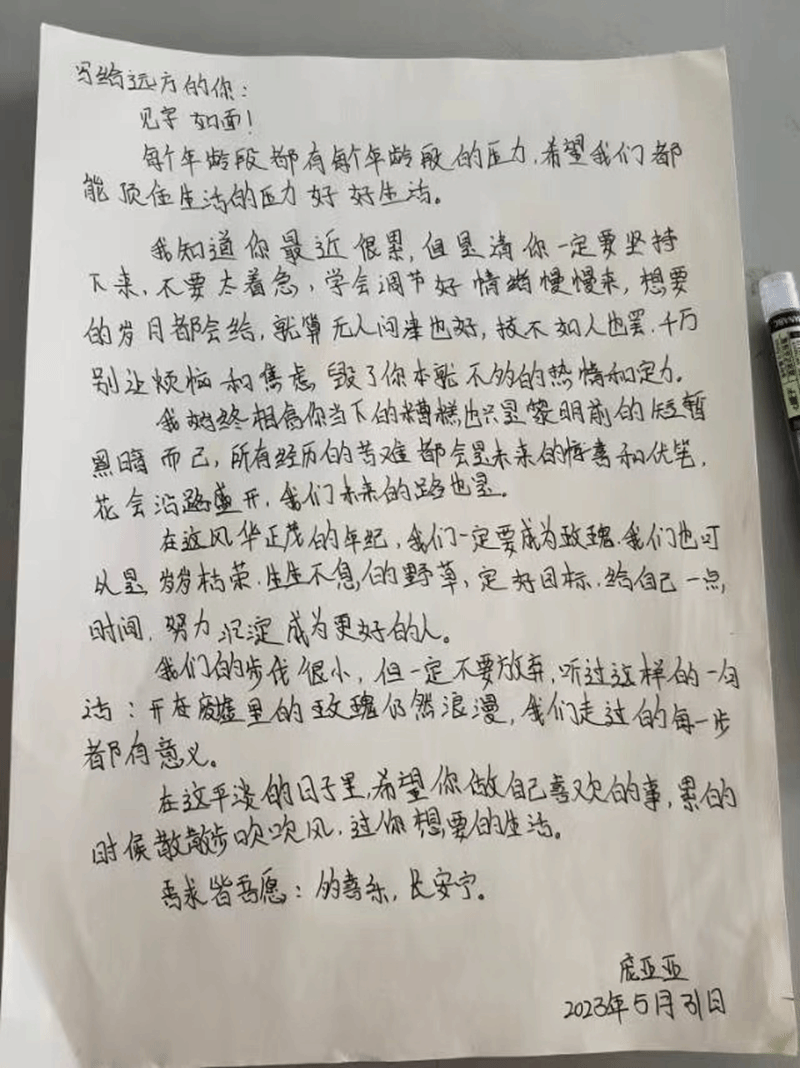 写给远方的你：
见字如面！
每个年龄段都有每个年龄段的压力，希望我们都
能顶住生活的压力好好生活。
我知道你最近很累，但是请你一定要坚持
下来，不要太着急，学会调节好情绪慢慢来，想要
的岁月都会给，就算无人问津也好，技不如人也罢，千万
别让烦恼和焦虑毁了你本就不够的热情和定力。
我始终相信你当下的糟糕也只是黎明前的短暂
黑暗而已，所有经历的苦难都会是未来的惊喜和伏笔，
花会沿路盛开，我们未来的路也是。
在这风华正茂的年纪，我们一定要成为玫瑰，我们也可
以是岁岁枯荣，生生不息的野草，定好目标，给自己一点
时间，努力沉淀成为更好的人。
我们的步伐很小，但一定不要放弃，听过这样的一句
话：开在废墟里的玫瑰仍然浪漫，我们走过的每一步
都有意义。
在这平淡的日子里，希望你做自己喜欢的事，累的
时候散散步吹吹风，过你想要的生活。
吾求皆吾愿：的喜乐，长安宁。
庞亚亚
2023年5月31日